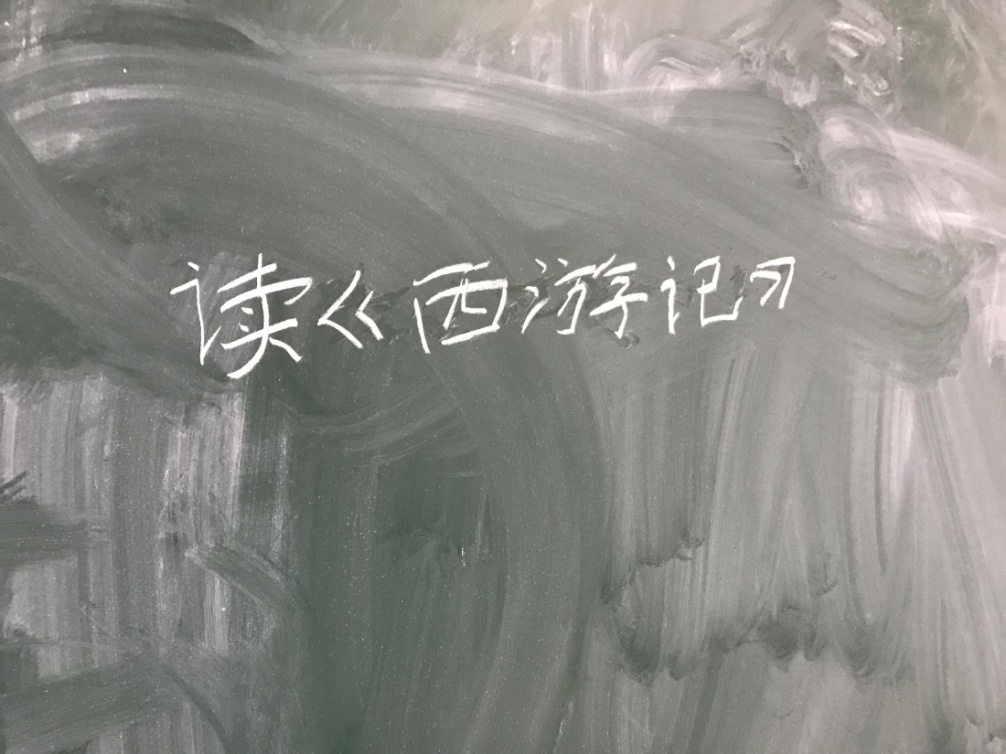 读《西游记》